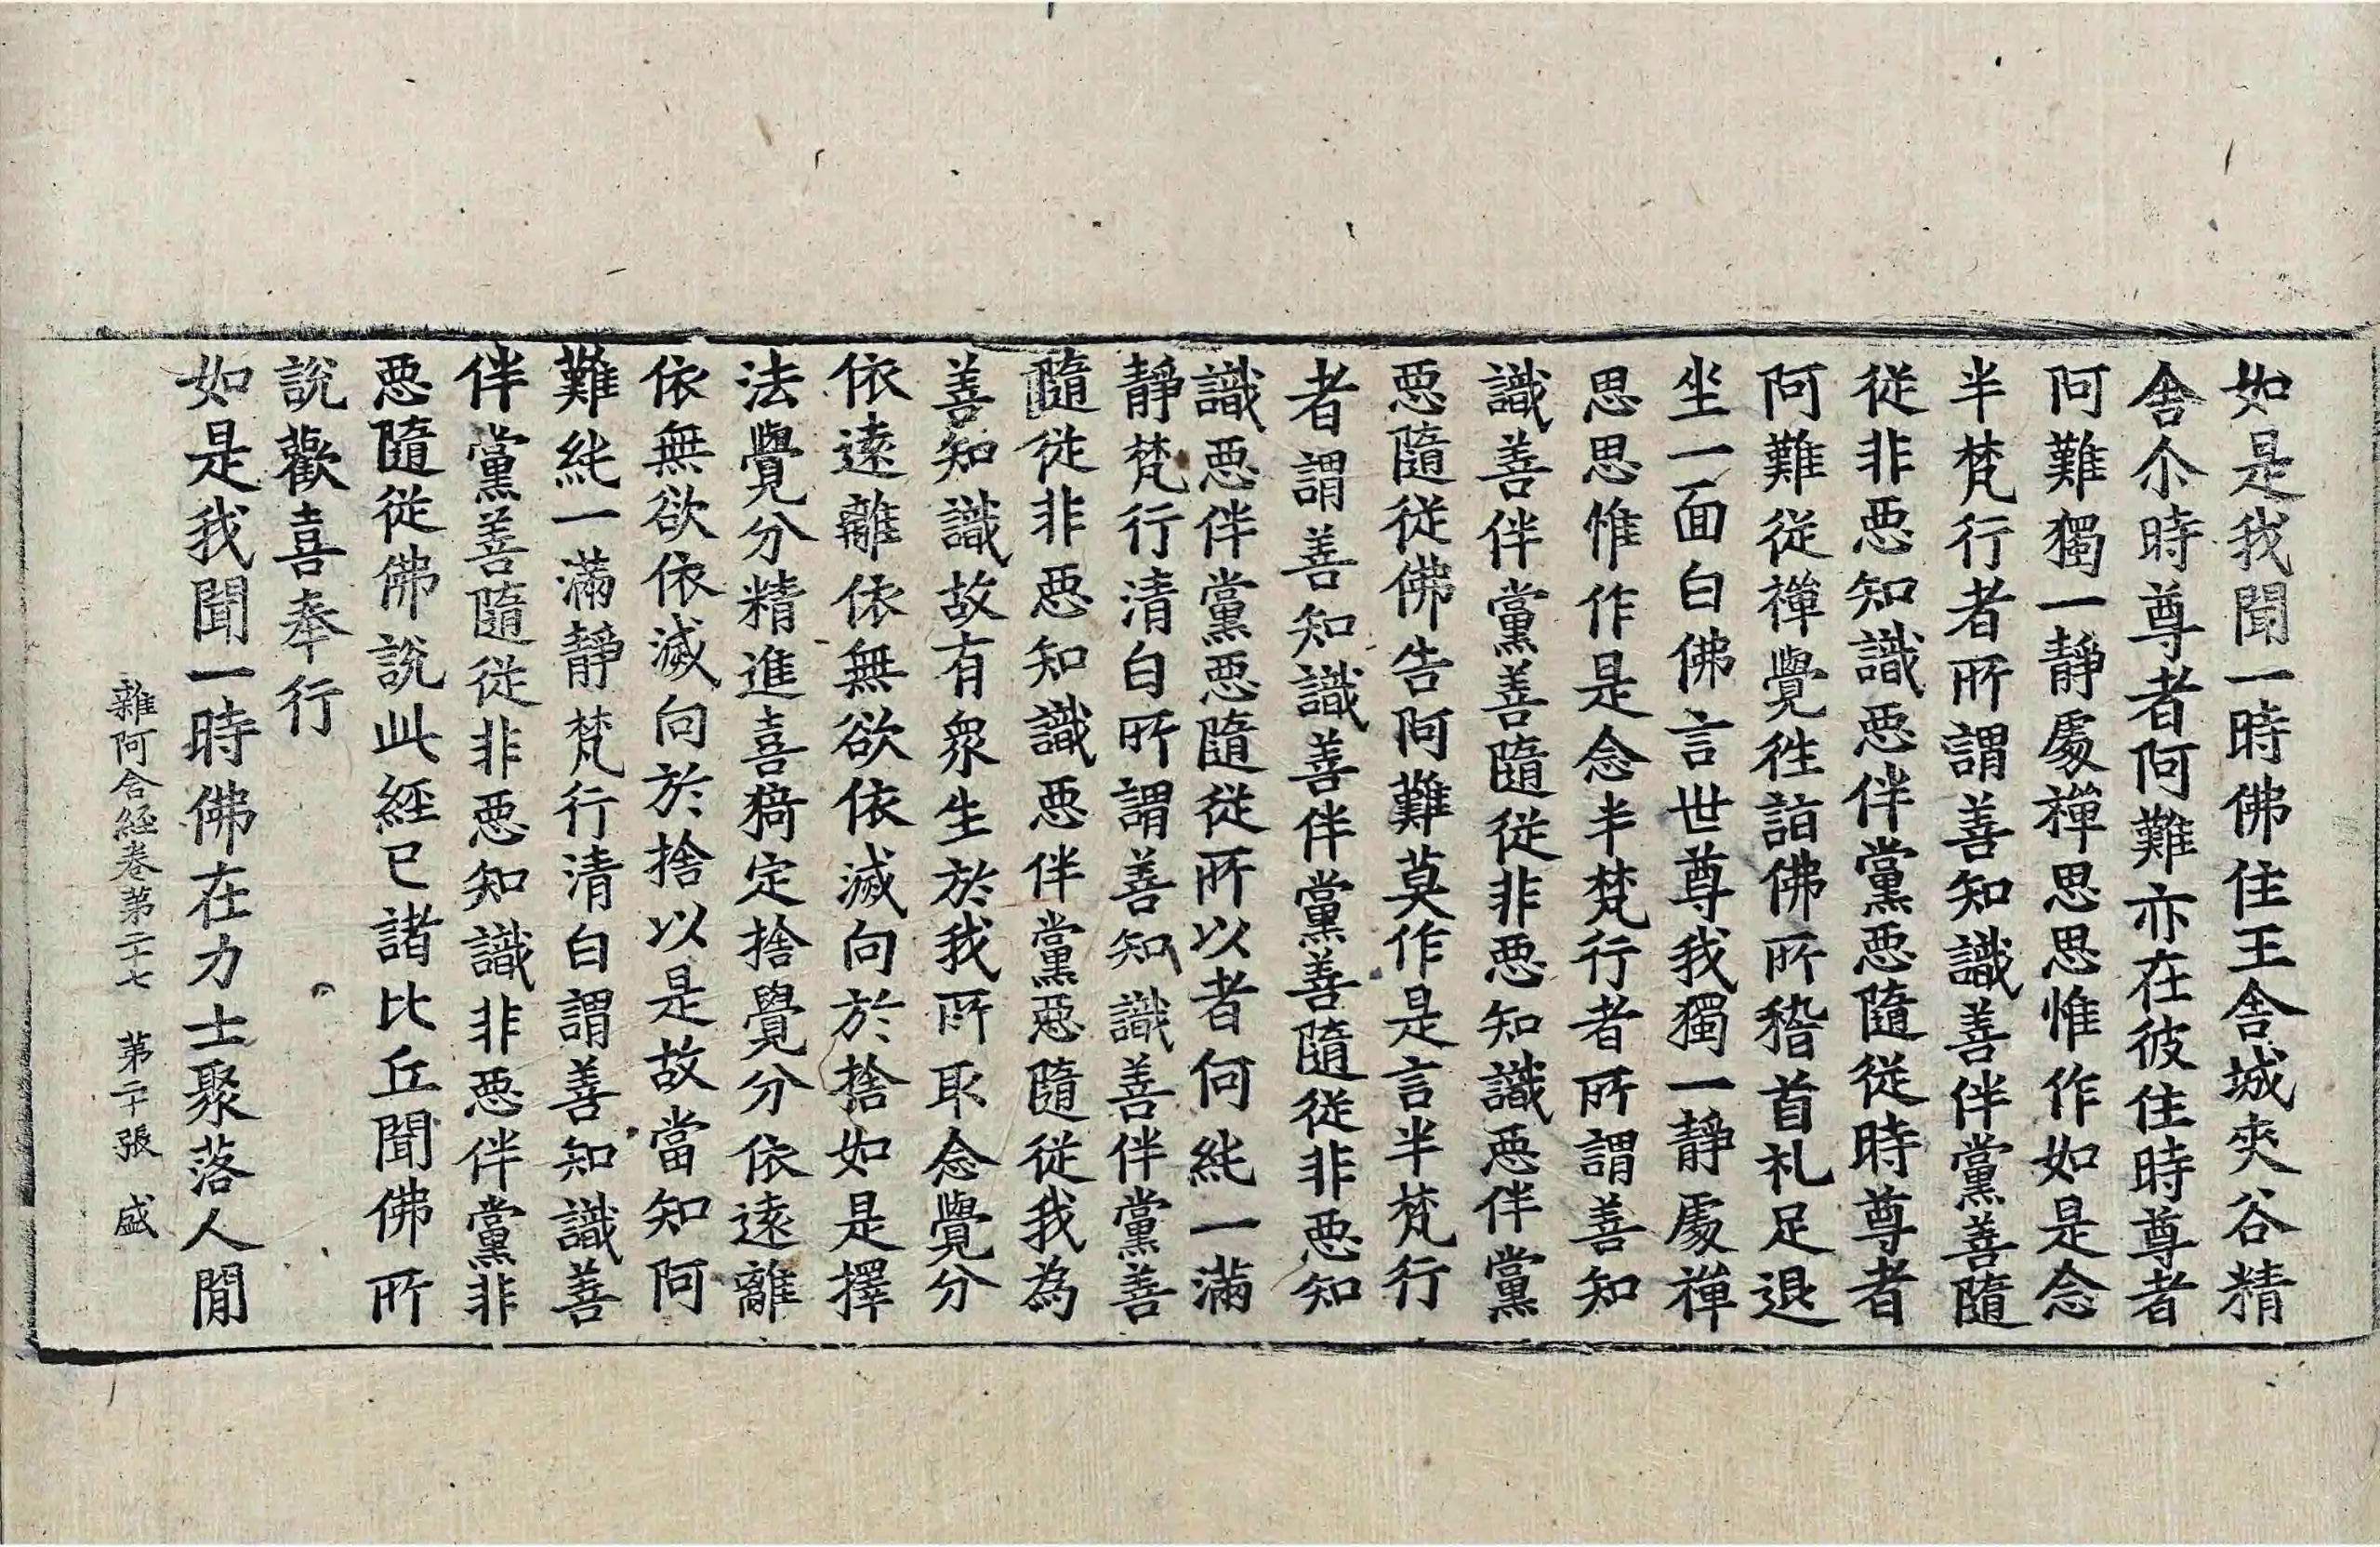 如是我聞一時佛住王舍城夾谷精
舍尒時尊者阿難亦在彼住時尊者
阿難獨一靜處禪思思惟作如是念
半梵行者所謂善知識善伴黨善隨
從非惡知識惡伴黨惡隨從時尊者
阿難從禪覺徃詣佛所稽首礼足退
坐一面白佛言世尊我獨一靜處禪
思思惟作是念半梵行者所謂善知
識善伴黨善隨從非惡知識惡伴黨
惡隨從佛告阿難莫作是言半梵行
者謂善知識善伴黨善隨從非惡知
識惡伴黨惡隨從所以者何純一滿
靜梵行清白所謂善知識善伴黨善
隨從非惡知識惡伴黨惡隨從我為
善知識故有衆生於我所取念覺分
依遠離依無欲依滅向於捨如是擇
法覺分精進喜猗定捨覺分依遠離
依無欲依滅向於捨以是故當知阿
難純一滿靜梵行清白謂善知識善
伴黨善隨從非惡知識非惡伴黨非
惡隨從佛說此經已諸比丘聞佛所
說歡喜奉行
如是我聞一時佛在力士聚落人間
雜阿含經卷第二十七　第二十張　盛